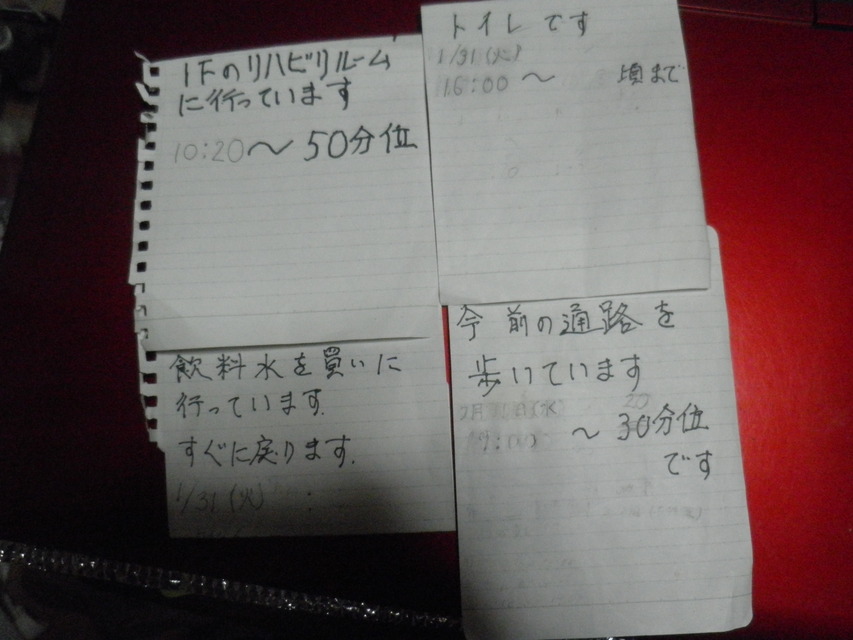 1Fのリハビリルーム
に行っています
10:20〜50分位
トイレです
1/31(火)
16:00〜 頃まで
飲料水を買いに
行っています.
すぐに戻ります.
1/31(火) :
今 前の通路を
歩いています
〜30分位
です